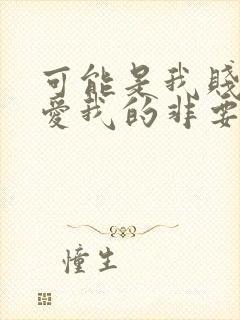 可能是我賤
愛我的非要
憧生